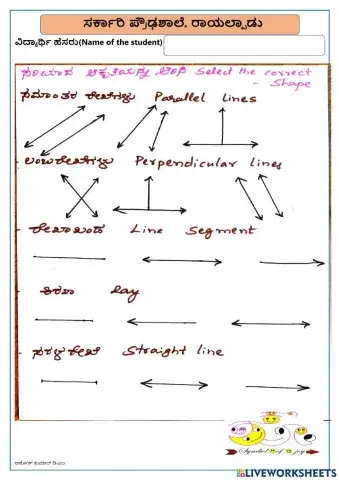 ಸರ್ಕಾರಿ ಪ್ರೌಢಶಾಲೆ, ರಾಯಲ್ಪಾಡು
ವಿದ್ಯಾರ್ಥಿ ಹೆಸರು(Name of the student)
ಸರಿಯಾದ ಆಕೃತಿಯನ್ನು ಆರಿಸಿ Select the correct
- Shape
ಸಮಾಂತರ ರೇಖೆಗಳು Parallel Lines
ಲಂಬರೇಖೆಗಳು Perpendicular lines
ರೇಖಾಖಂಡ Line Segment
ಕಿರಣ Ray
ಸರಳರೇಖೆ Straight line
Symbol of joy
ಅಶೋಕ್ ಕುಮಾರ್ ಡಿ.ಎಂ.
LIVEWORKSHEETS